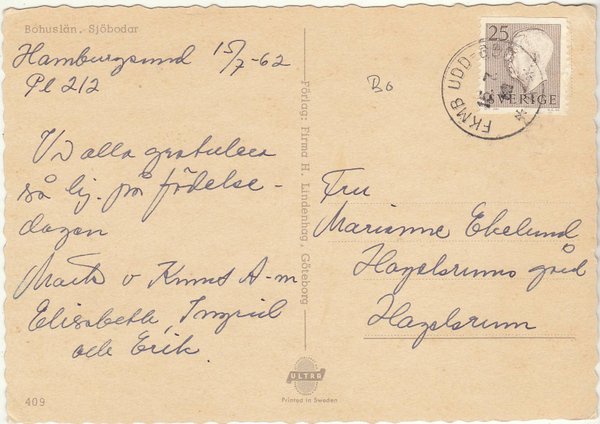 Bohuslän. Sjöbodar
Hamburgsund 15/7-62
Pl 212
Vi alla gratulera
så hj. på födelse-
dagen
Märta o Knut A-m
Elisabeth, Ingrid
och Erik.
Förlag: Firma H. Lindenhag, Göteborg
B6
25
SVERIGE
FKMB UDD
Fru
Marianne Ekelund
Hagelsrums gård
Hagelsrum
ULTRA
Printed in Sweden
409